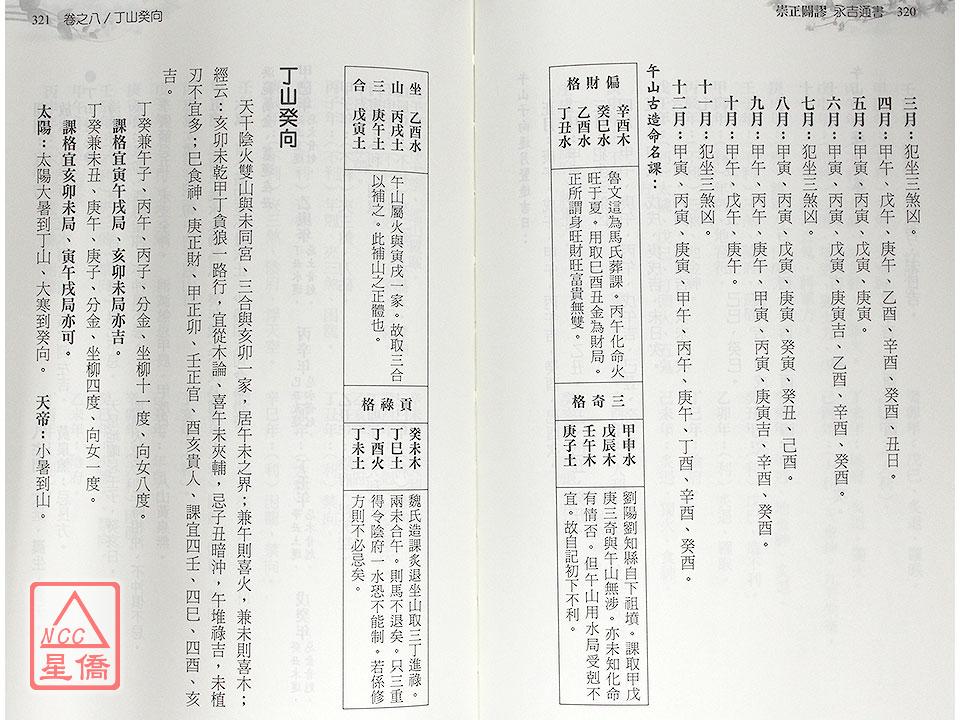 崇正闢謬 永吉通書 320
三月：犯坐三煞凶。
四月：甲午、戊午、庚午、乙酉、辛酉、癸酉、丑日。
五月：甲寅、丙寅、戊寅、庚寅。
六月：甲寅、丙寅、戊寅、庚寅吉、乙酉、辛酉、癸酉。
七月：犯坐三煞凶。
八月：甲寅、丙寅、戊寅、庚寅、癸寅、癸丑、己酉。
九月：甲午、丙午、庚午、甲寅、丙寅、庚寅吉、辛酉、癸酉。
十月：甲午、戊午、庚午。
十一月：犯坐三煞凶。
十二月：甲寅、丙寅、庚寅、甲午、丙午、庚午、丁酉、辛酉、癸酉。
午山古造命名課：
偏財格
辛酉木
癸巳水
乙酉水
丁丑水
魯文這為馬氏葬課。丙午化命火
旺于夏。用取巳酉丑金為財局。
正所謂身旺財旺富貴無雙。
三奇格
甲申水
戊辰木
壬午木
庚子土
劉陽劉知縣自下祖墳。課取甲戊
庚三奇與午山無涉。亦未知化命
有情否。但午山用水局受剋不
宜。故自記初下不利。
321 卷之八／丁山癸向
坐山三合
乙酉水
丙戌土
庚午土
戊寅土
午山屬火與寅戌一家。故取三合
以補之。此補山之正體也。
貢祿格
癸未木
丁巳土
丁酉火
丁未土
魏氏造課炙退坐山取三丁進祿。
兩未合午。則馬不退矣。只三重
得令陰府一水恐不能制。若係修
方則不必忌矣。
丁山癸向
天干陰火雙山與未同宮、三合與亥卯一家，居午未之界；兼午則喜火，兼未則喜木；
經云：亥卯未乾甲丁貪狼一路行，宜從木論、喜午未夾輔，忌子丑暗沖，午堆祿吉，未植
刃不宜多；巳食神、庚正財、甲正卯、壬正官、酉亥貴人、課宜四壬、四巳、四酉、亥
吉。
丁癸兼午子、丙午、丙子、分金、坐柳十一度、向女八度。
課格宜寅午戌局、亥卯未局亦吉。
丁癸兼未丑、庚午、庚子、分金、坐柳四度、向女一度。
課格宜亥卯未局、寅午戌局亦可。
太陽：太陽大暑到丁山、大寒到癸向。 天帝：小暑到山。
NCC
星僑